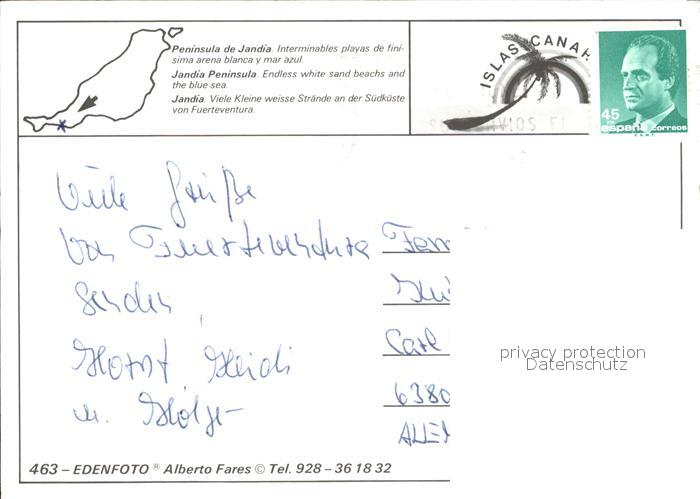 Península de Jandía. Interminables playas de finí-
sima arena blanca y mar azul.
Jandía Peninsula. Endless white sand beachs and
the blue sea.
Jandía. Viele Kleine weisse Strände an der Südküste
von Fuerteventura.
ISLAS CANAR
45
españa correos
Viele Grüße
Von Fuerteventura
Senden
Horst Heidi
u. Holger
Fam
Carl
6380
ALLEM
privacy protection
Datenschutz
463 – EDENFOTO ® Alberto Fares © Tel. 928 – 36 18 32